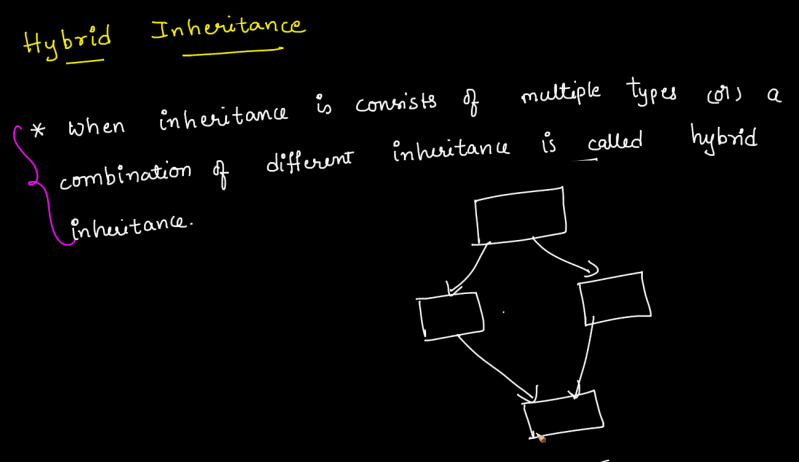 Hybrid Inheritance
* When inheritance is consists of multiple types (or) a
combination of different inheritance is called hybrid
inheritance.